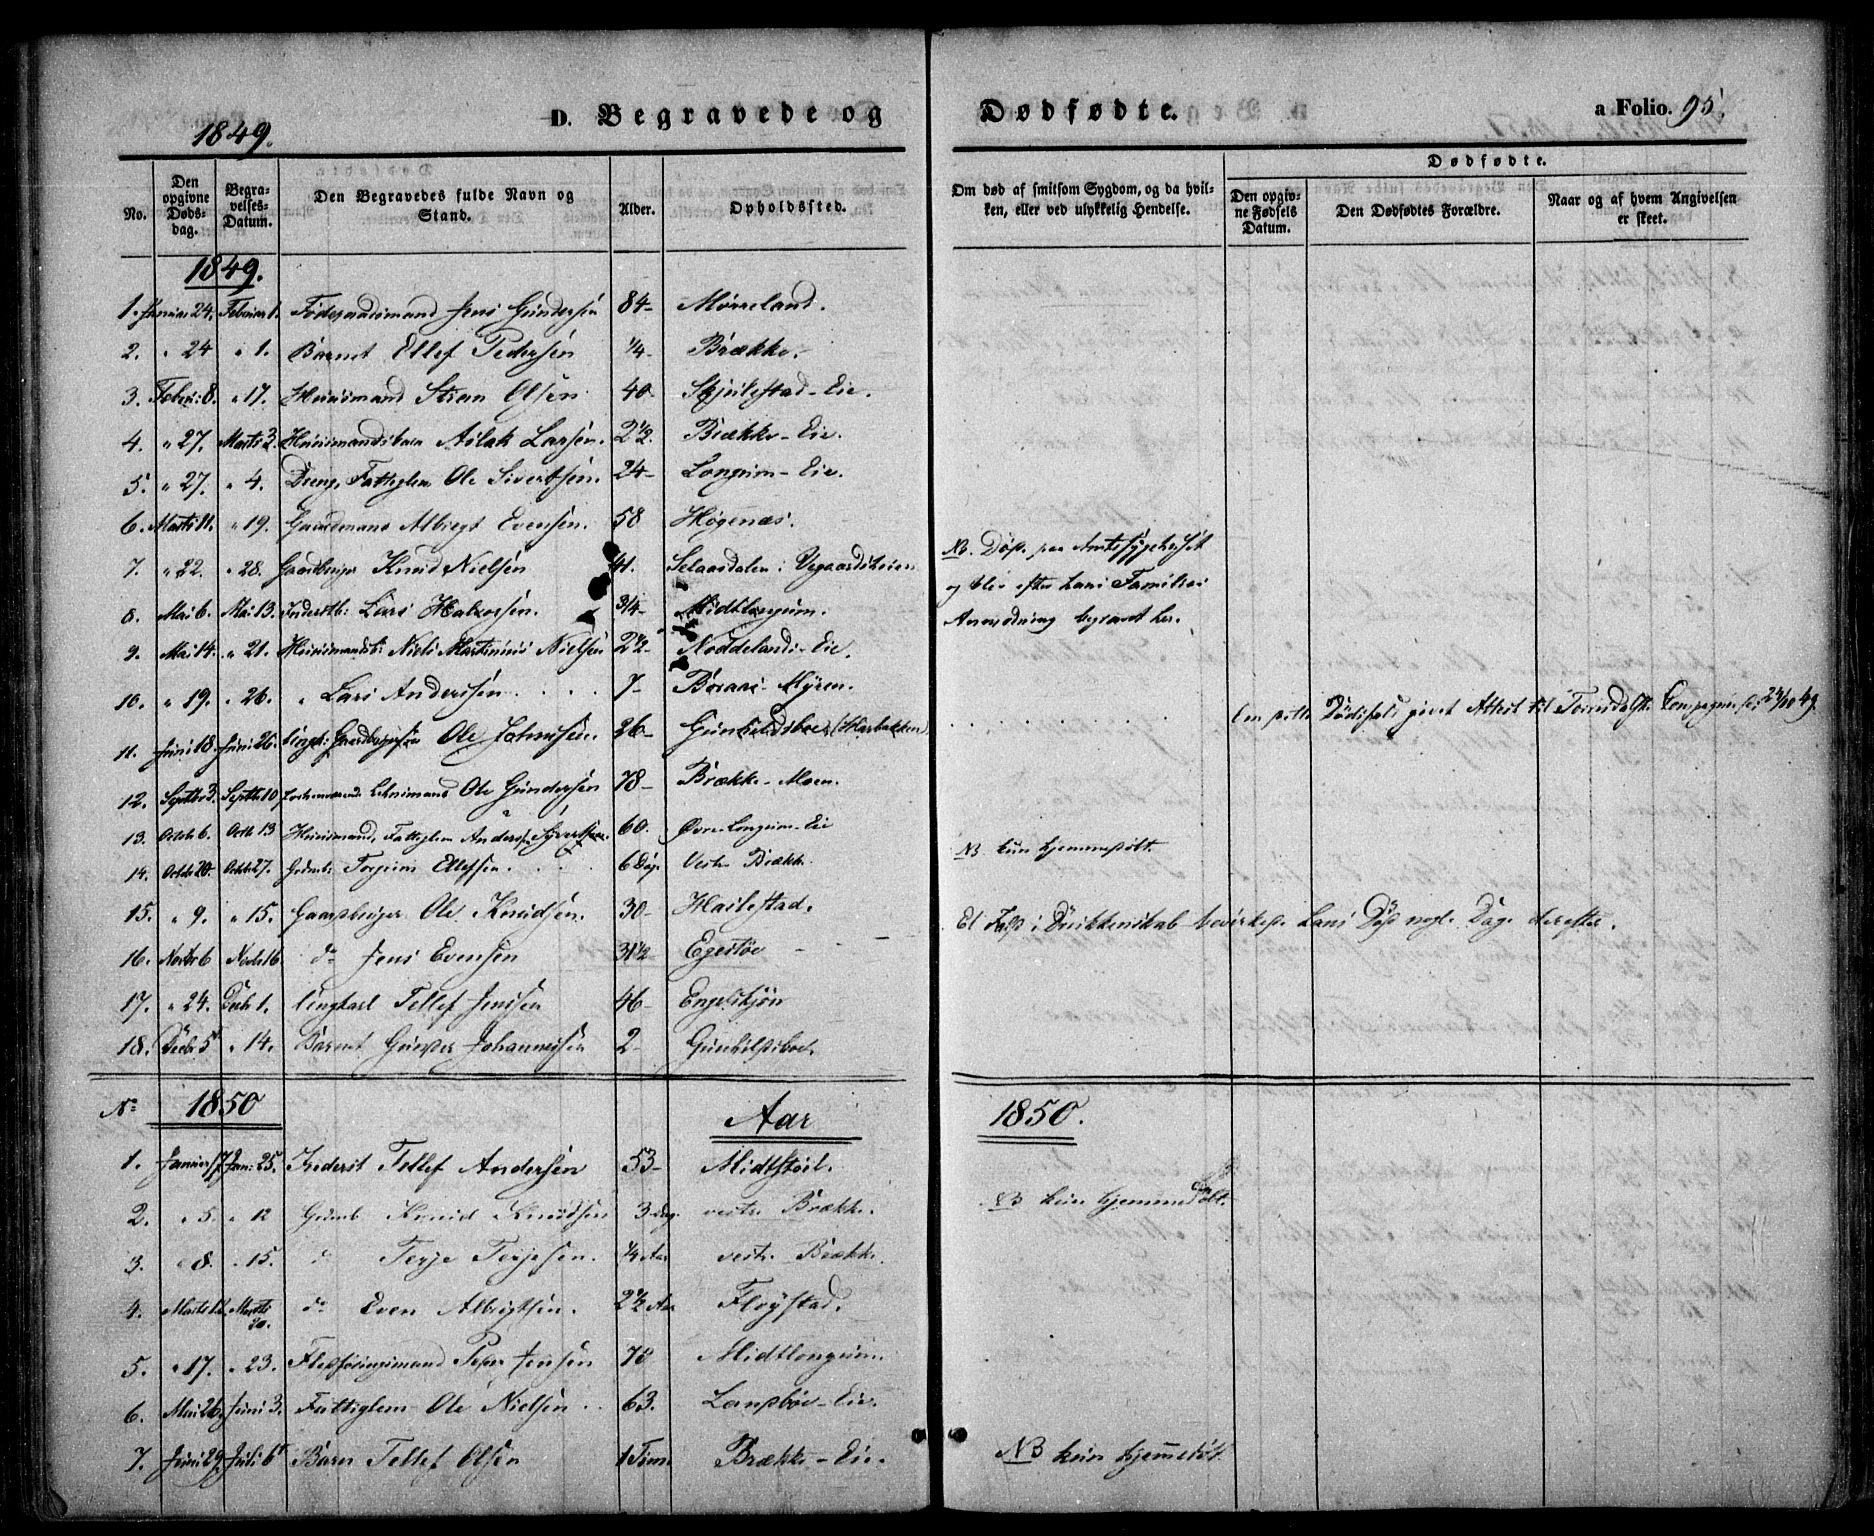 D. Begravede og Dødfødte. a Folio. 95.
1849.
No.
Den opgivne Døds-dag.
Begra-velses-Datum.
Den Begravedes fulde Navn og Stand.
Alder.
Opholdssted.
Om død af smitsom Sygdom, og da hvil-ken, eller ved ulykkelig Hendelse.
Dødfødte.
Den opgiv-ne Fødsels Datum.
Den Dødfødtes Forældre.
Naar og af hvem Angivelsen er skeet.
1849.
1. Januar 24. Februar 1. Føderaadsmand Jens Gundersen 84 - Mørreland.
2. " 24 " 1. Barnet Ellef Pedersen 1/4 - Brække.
3. Febru: 8. " 17. Huusmand Olsen 40 - Skjulestad-Eie.
4. " 27. Marts 3. Aslak Larsen. 2 1/2. Brække-Eie.
5. " 27. " 4. Dreng, Fattiglem Ole Sivertsen. 24 - Longum-Eie.
6. Marts 11. " 19. Gaardmand Albregt Evensen. 58 Høgenæs.
7. " 22. " 28. Gaardbruger Knud Nielsen 41. Selaasdalen i Vegaardsheien
NB. Døde paa Amtssygehuset og blev efter hans Families Anmodning begravet her.
8. Mai 6. Mai 13. Inderstb: Lars Halvorsen. 3/4 - Midtlongum.
9. Mai 14. " 21. Huusmandsb: Niels Martinius Nielsen 2 1/2 - Noddelands-Eie.
10. " 19. " 26. " Lars Andersen. 7 - Braas-Myren.
11. Juni 18. Juni 26. Ungk: Ole Johnsen. 26 - Gunheldsboe (Harbakken)
12. Septbr 3. Septbr 10 Ole Gundersen 78 - Brække-Moen.
13. Octobr 6. Octb 13 Huusmand, Fattiglem Anders Syvertsen. 60. Øvre Longum-Eie
14. Octobr 20. Octobr 27. Grmb: Torjuus Ellefsen. 6 Dage Vestre Brække
NB. kun hjemmedøbt.
15. " 9. " 15. Gaardbruger Ole Knudsen. 30 - Hailestad.
Et Fald i Drukkenskab bevirkede hans Død nogle Dage derefter.
16. Novbr 6 Novbr 16 do Jens Evensen 31 1/2 Egestøe
17. " 24. Decbr 1. Ungkarl Tellef Jensen 46 - Engelskjøn
18. Decbr 5 " 14. Barnet Johannessen 2 - Gunhilsboe.
No 1850 Aar 1850.
1. Januar 17 Jan: 25. Inderst Tellef Andersen 53 - Midtstøil.
2. " 5. " 12 Grmb Knud Knudsen 3 Dag. vestre Brække.
NB kun hjemmedøbt.
3. " 8. " 15. d Terje Terjesen. 1/4 Aar vestre Brække
4. Marts 12. Marts 20. do Even Albrigtsen. 2 1/2 Aar Fløystad.
5. " 17. " 23. Peder Jensen 78 Midtlongum.
6. Mai 26. Juni 3. Fattiglem Ole Nielsen 63. Eie.
7. Juni 29. Juli 6 Barn Tellef Olsen 1 Time. Brække-Eie.
NB kun hjemmedøbt